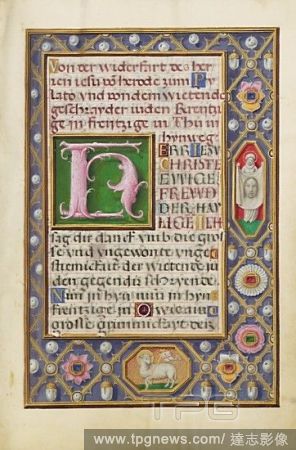 Von der widerfart des her
ren iesu vö herode zum Py
lato und von dem wietende
geschray der iuden Barentzi
ge in frentzige in Thu in
hyn weg
HERR IESV
CHRISTE
EWIGE
FREWD
DER HAY
LIGE ICH
sag dir danck vmb die gros
se vnd vngewonte vnge
stiemickait der wietende iu
den gegen dir schryende
Nim in hyn nim in hyn
frentzige in O wie ain
grosse grimmickayt der
TPG
www.tpgnews.com / 達志影像